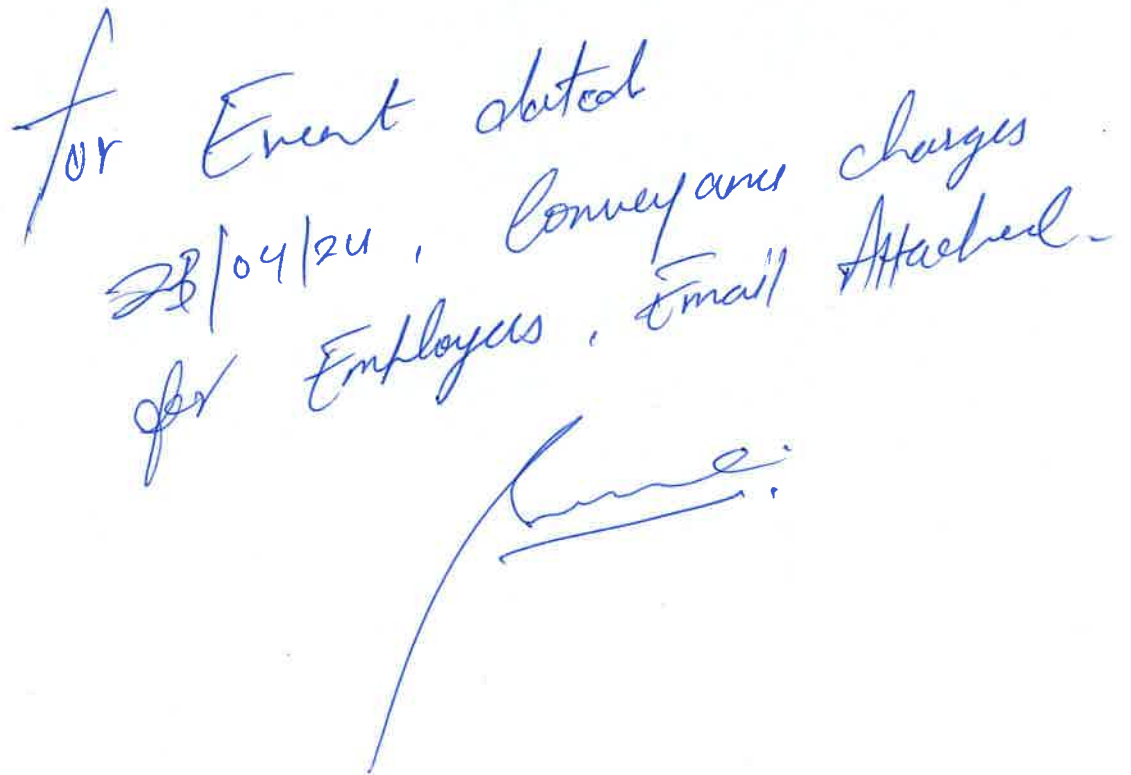 for Event dated
28/04/24, Conveyance charges
for Employees, Email Attached-